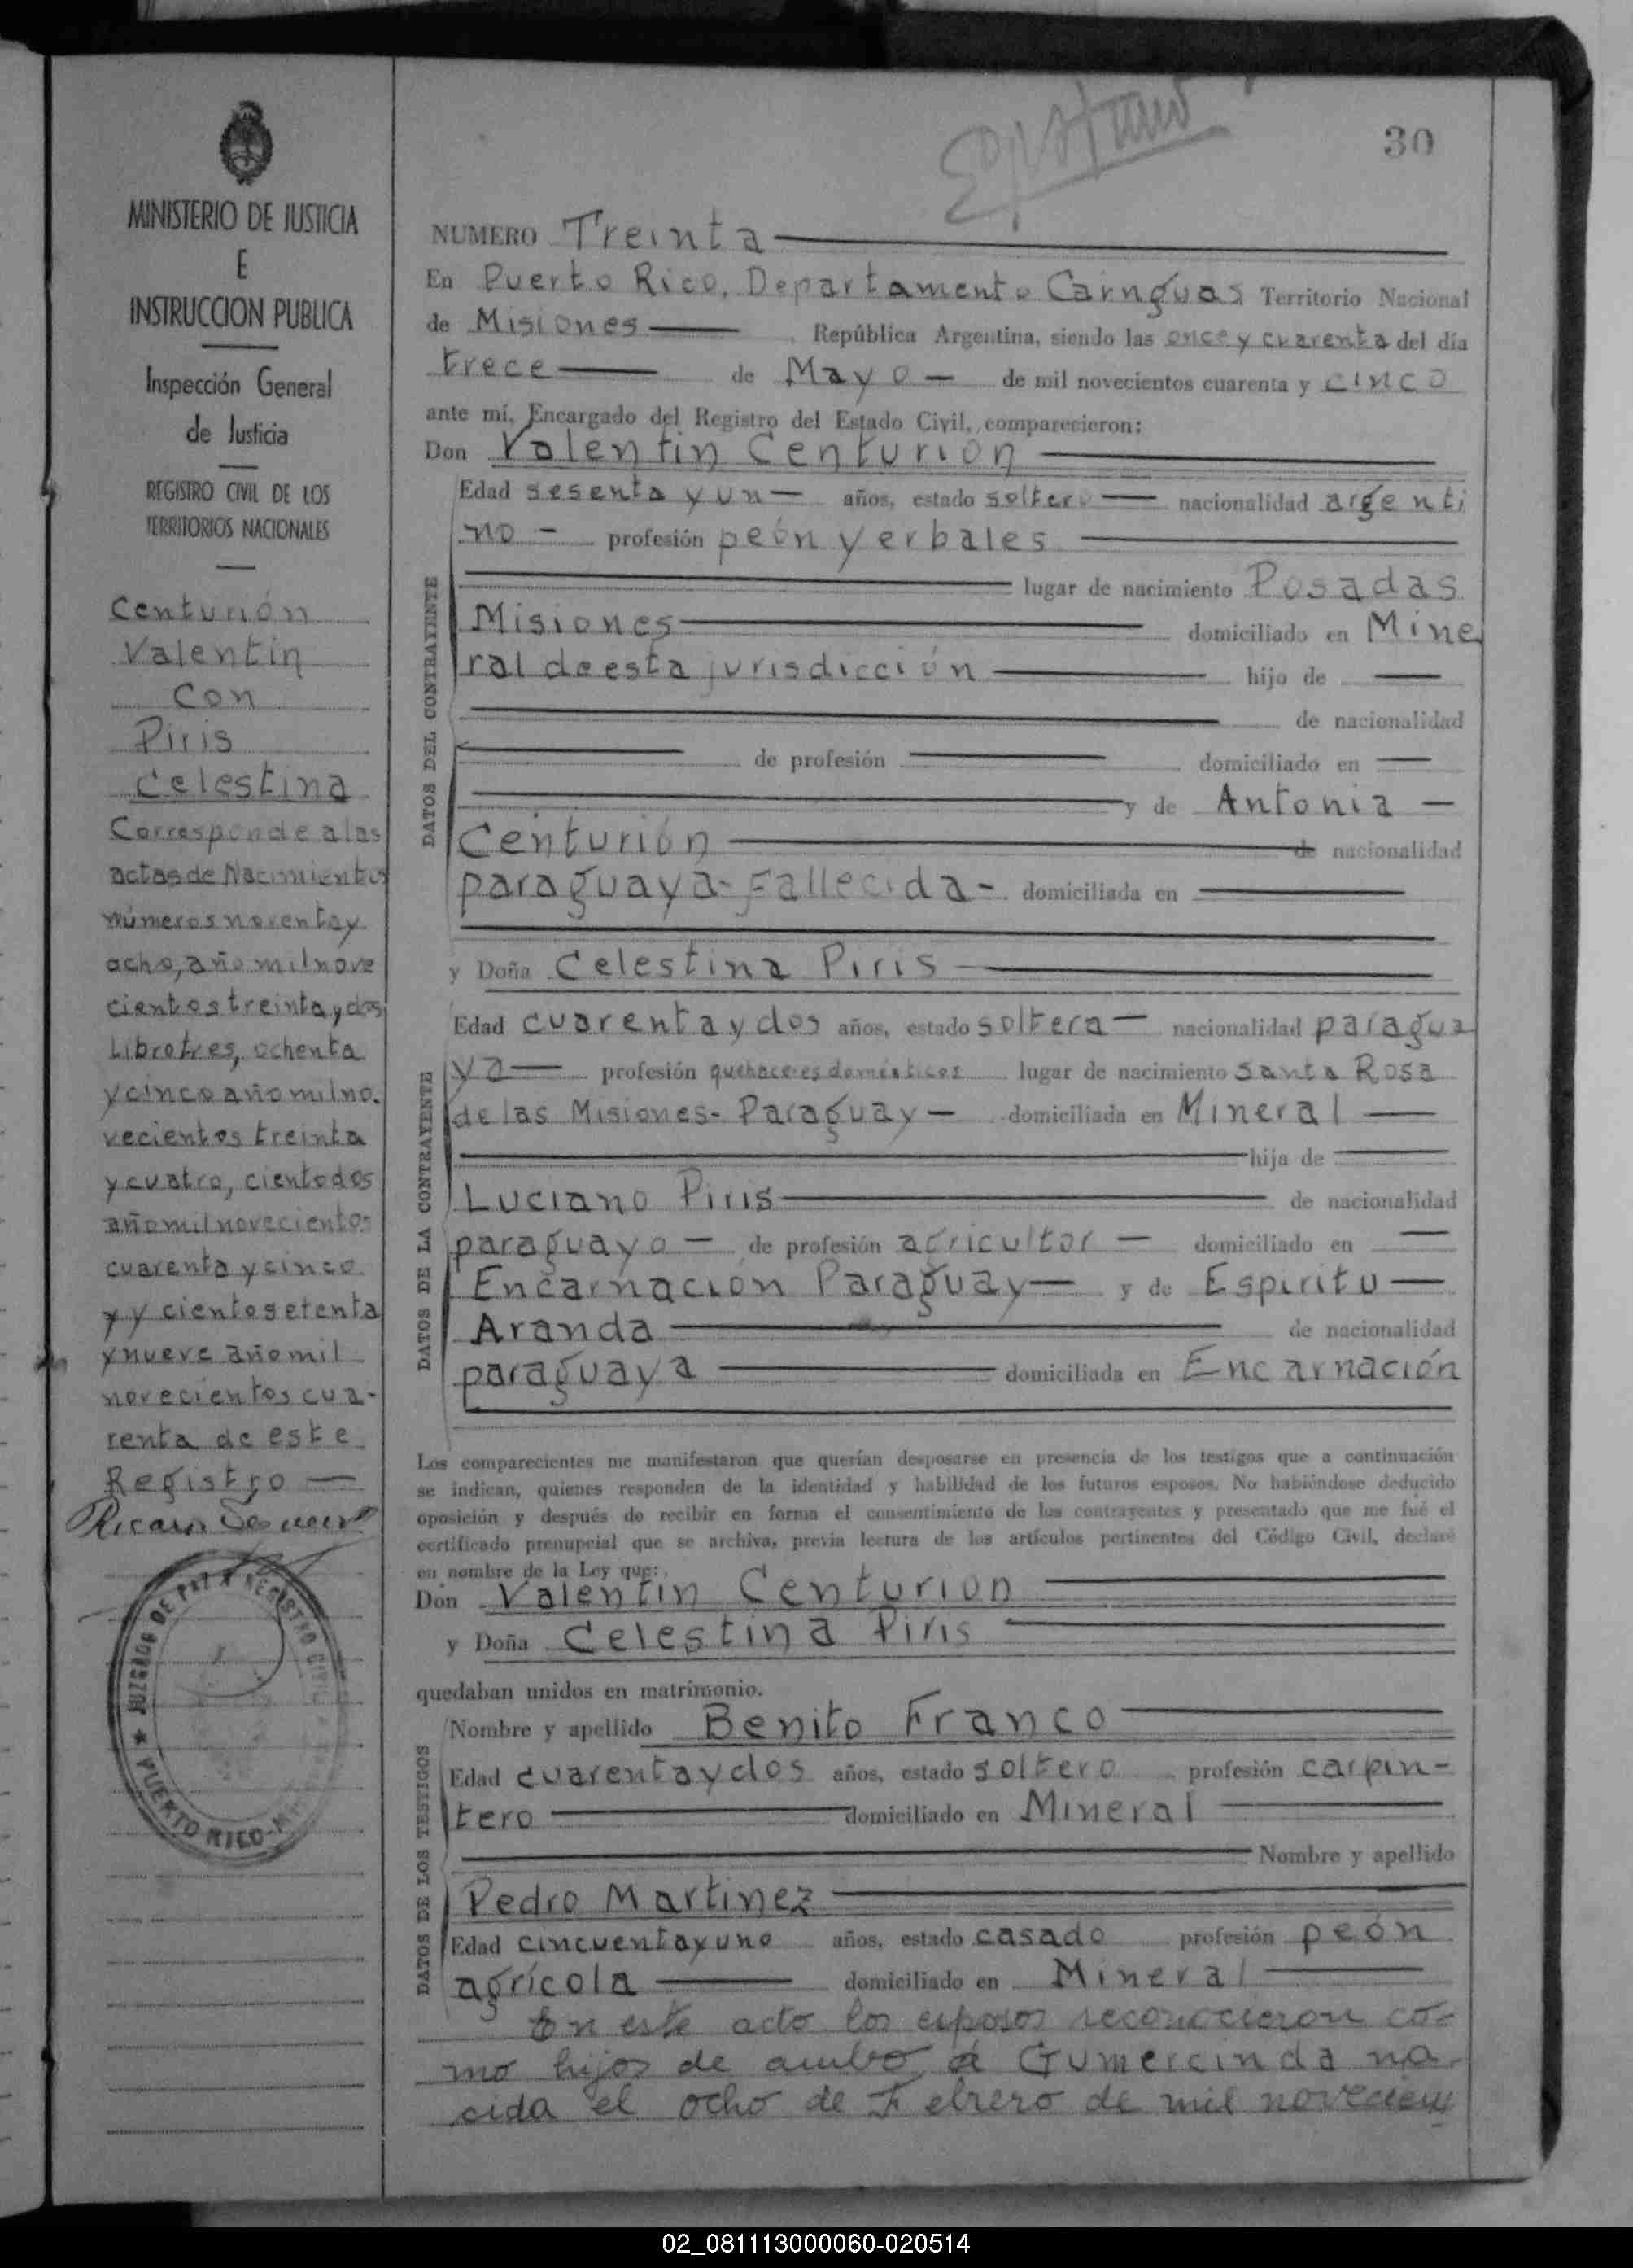 30
MINISTERIO DE JUSTICIA
E
INSTRUCCION PUBLICA
Inspección General
de Justicia
REGISTRO CIVIL DE LOS
TERRITORIOS NACIONALES
Centurión
Valentin
Con
Piris
Celestina
Corresponde a las
actas de Nacimientos
números noventa y
acho, año mil nove
cientos treinta y dos
Libro tres, ochenta
y cinco año mil no.
vecientos treinta
y cuatro, ciento dos
año mil novecientos
cuarenta y cinco
y y ciento setenta
y nueve año mil
novecientos cua-
renta de este
Registro
JUZGADO DE PAZ Y REGISTRO CIVIL
PUERTO RICO
NUMERO Treinta
En Puerto Rico, Departamento Cainguas Territorio Nacional
de Misiones República Argentina, siendo las once y cuarenta del día
trece de Mayo de mil novecientos cuarenta y cinco
ante mí, Encargado del Registro del Estado Civil, comparecieron:
Don Valentin Centurion
DATOS DEL CONTRAYENTE
Edad sesenta y un años, estado soltero nacionalidad argenti
no - profesión peón yerbales
lugar de nacimiento Posadas
Misiones domiciliado en Mine
ral de esta jurisdicción hijo de
de nacionalidad
de profesión domiciliado en
y de Antonia
Centurión de nacionalidad
paraguaya - Fallecida - domiciliada en
y Doña Celestina Piris
DATOS DE LA CONTRAYENTE
Edad cuarenta y dos años, estado soltera nacionalidad paragua
ya profesión quehaceres domésticos lugar de nacimiento Santa Rosa
de las Misiones - Paraguay domiciliada en Mineral
hija de
Luciano Piris de nacionalidad
paraguayo de profesión agricultor domiciliado en
Encarnación Paraguay y de Espiritu
Aranda de nacionalidad
paraguaya domiciliada en Encarnación
Los comparecientes me manifestaron que querían desposarse en presencia de los testigos que a continuación
se indican, quienes responden de la identidad y habilidad de los futuros esposos. No habiéndose deducido
oposición y después de recibir en forma el consentimiento de los contrayentes y presentado que me fué el
certificado prenupcial que se archiva, previa lectura de los artículos pertinentes del Código Civil, declaré
en nombre de la Ley que:
Don Valentin Centurion
y Doña Celestina Piris
quedaban unidos en matrimonio.
DATOS DE LOS TESTIGOS
Nombre y apellido Benito Franco
Edad cuarenta y dos años, estado soltero profesión carpin-
tero domiciliado en Mineral
Nombre y apellido
Pedro Martinez
Edad cincuenta y uno años, estado casado profesión peón
agrícola domiciliado en Mineral
En este acto los esposos reconocieron co-
mo hijos de ambo á Gumercinda na-
cida el ocho de Febrero de mil novecien
02_081113000060-020514